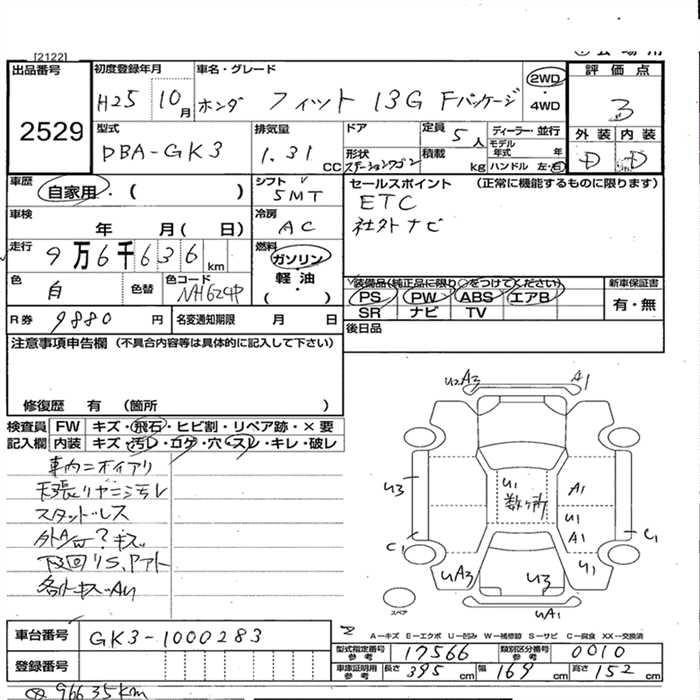 [2122]
出品番号 初度登録年月 車名・グレード 2WD 評価点
2529 H25 10月 ホンダ フィット 13G Fパッケージ ・ 4WD 3
型式 排気量 ドア 定員 5人 ディーラー・並行 外装 内装
DBA-GK3 1.31 CC 形状 ステーションワゴン 積載 kg モデル年式 年 ハンドル 左・右 D D
車歴 自家用・( ) シフト 5MT セールスポイント (正常に機能するものに限ります)
車検 年 月( 日) 冷房 AC ETC
走行 9万6千636km 燃料 ガソリン・軽油 ( ) 社外ナビ
色 白 色替 色コード NH624P 装備品(純正品に限り○をつけてください) 新車保証書
PS PW ABS エアB 有・無
R券 9880円 名変通知期限 月 日 SR ナビ TV
注意事項申告欄 (不具合内容等は具体的に記入して下さい) 後日品
修復歴 有 (箇所 )
検査員 FW キズ・飛石・ヒビ割・リペア跡・×要
記入欄 内装 キズ・汚レ・コゲ・穴・スレ・キレ・破レ
車内ニオイアリ
天張リヤニシミレ
スタッドレス
外A/W?キズ
下回りS,Pアト
各トキズ・AU
U2A3 A1
U3 U1 数ヶ所 A1
U1
C1 A1 C1
UA3 U3 U1
スペア UA1
A―キズ E―エクボ U―凹み W―補修跡 S―サビ C―腐食 XX―交換済
車台番号 GK3-1000283 型式指定番号 参考 17566 類別区分番号 参考 0010
登録番号 車庫証明用 参考 長さ 395cm 幅 169cm 高さ 152cm
96635km